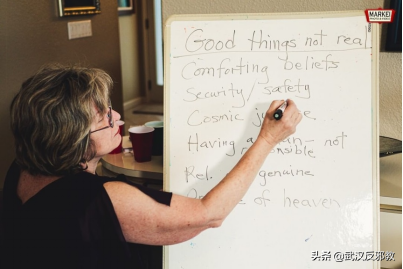 MARKEI
Good things not real
Comforting beliefs
Security/safety
Cosmic
Having a not
Rel. genuine
of heaven
头条 @武汉反邪教